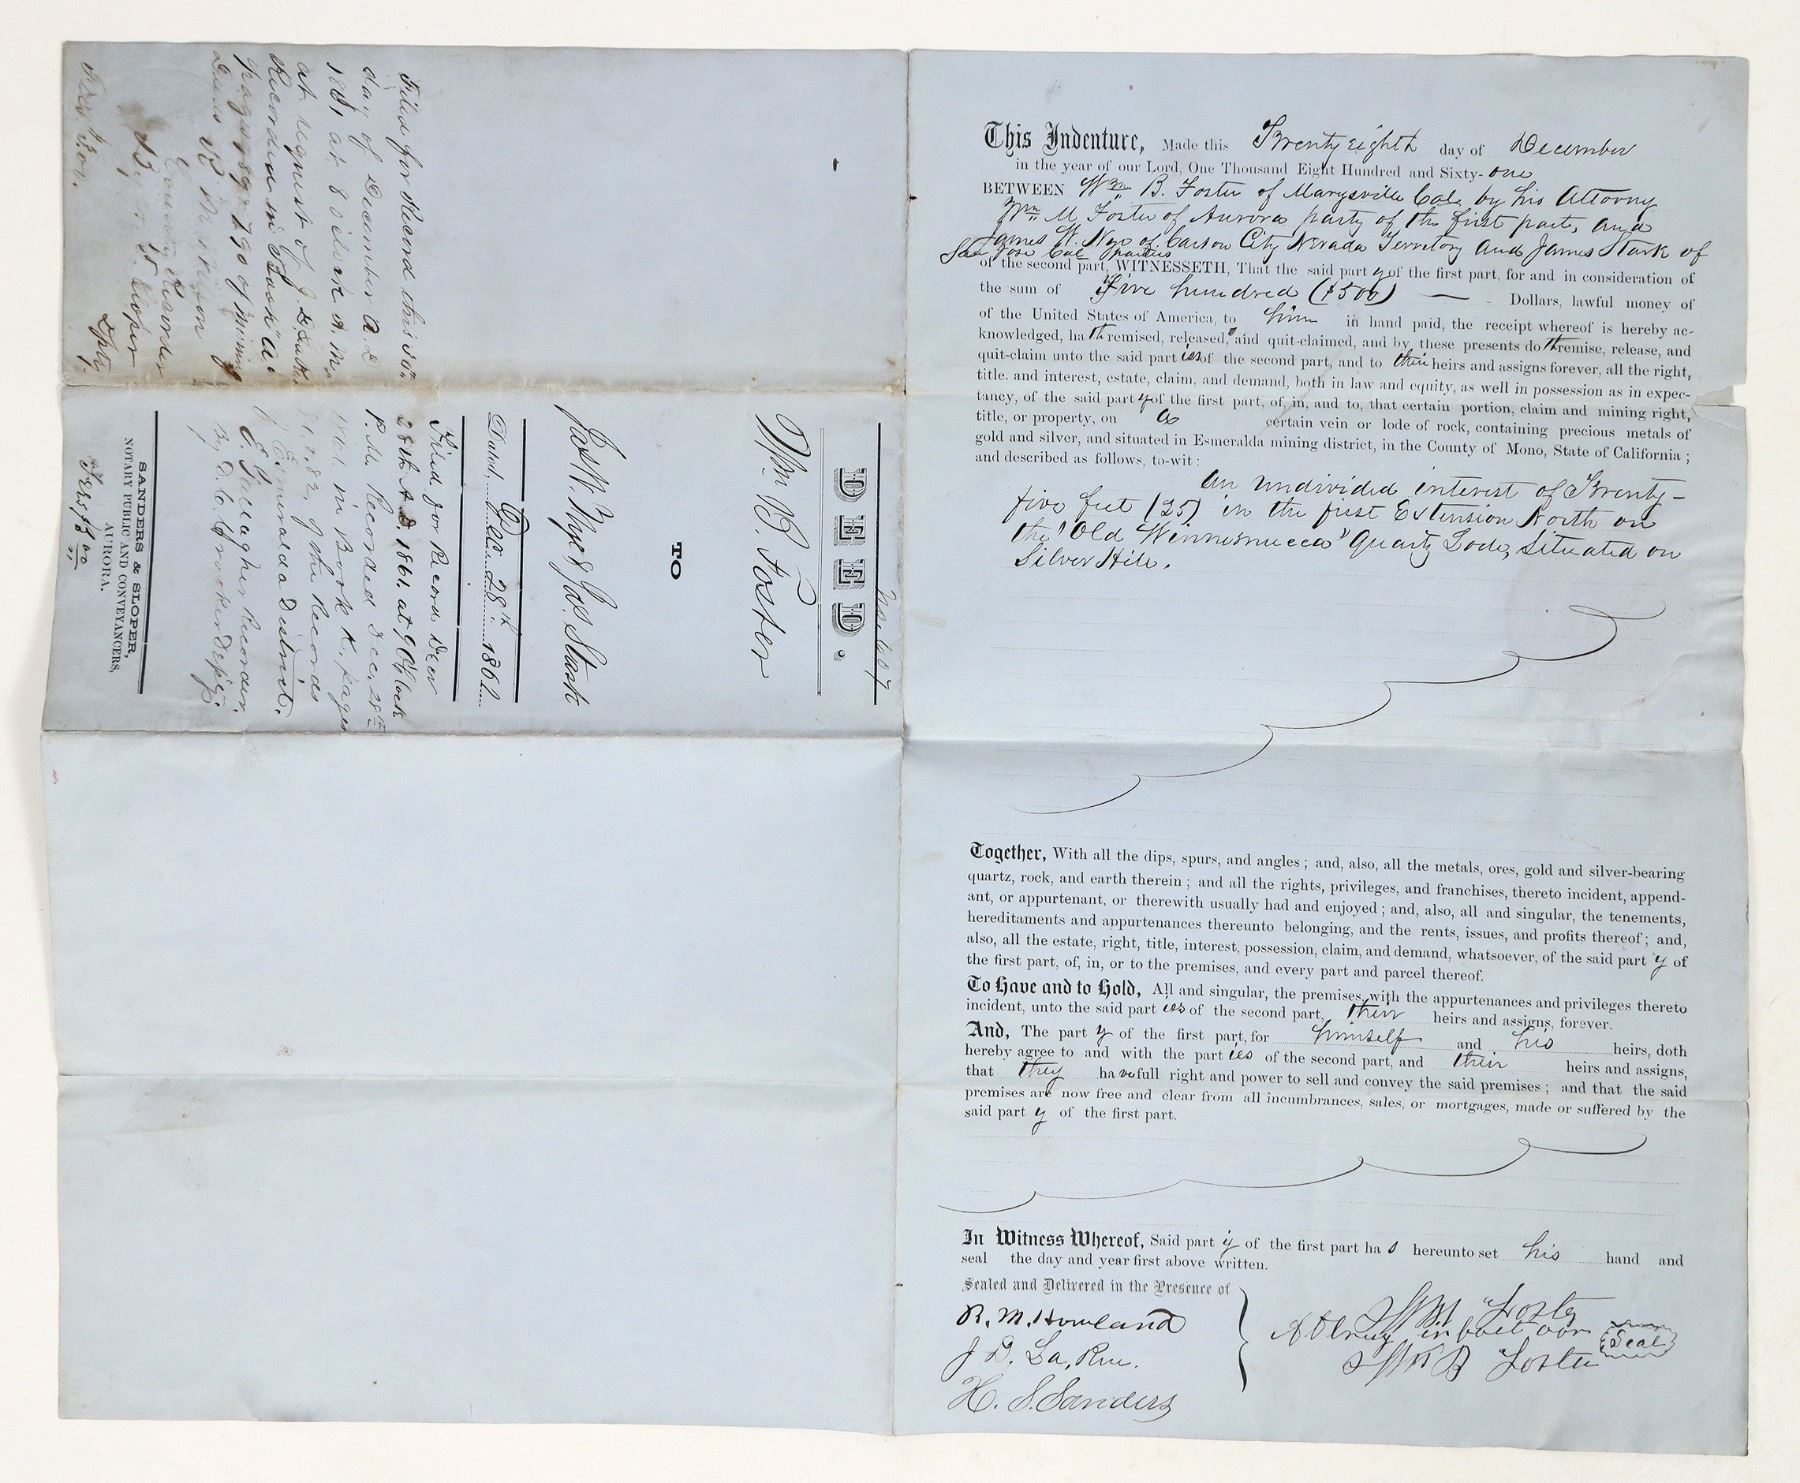 This Indenture, Made this Twenty eighth day of December
in the year of our Lord, One Thousand Eight Hundred and Sixty-one
BETWEEN Wm B. Foster of Marysville Cal. by his Attorny
Wm M Foster of Aurora party of the first part, and
James W. Nye of Carson City Nevada Territory and James Stark of
San Jose Cal parties
of the second part, WITNESSETH, That the said party of the first part, for and in consideration of
the sum of Five hundred ($500) — Dollars, lawful money of
of the United States of America, to him in hand paid, the receipt whereof is hereby ac-
knowledged, hath remised, released, and quit-claimed, and by these presents doth remise, release, and
quit-claim unto the said parties of the second part, and to their heirs and assigns forever, all the right,
title. and interest, estate, claim, and demand, both in law and equity, as well in possession as in expec-
tancy, of the said party of the first part, of, in, and to, that certain portion, claim and mining right,
title, or property, on a certain vein or lode of rock, containing precious metals of
gold and silver, and situated in Esmeralda mining district, in the County of Mono, State of California ;
and described as follows, to-wit :
An undivided interest of Twenty-
five feet (25) in the first Extension North on
the "Old Winnemucca" Quartz Lode, Situated on
Silver Hill.
Together, With all the dips, spurs, and angles ; and, also, all the metals, ores, gold and silver-bearing
quartz, rock, and earth therein ; and all the rights, privileges, and franchises, thereto incident, append-
ant, or appurtenant, or therewith usually had and enjoyed ; and, also, all and singular, the tenements,
hereditaments and appurtenances thereunto belonging, and the rents, issues, and profits thereof ; and,
also, all the estate, right, title, interest, possession, claim, and demand, whatsoever, of the said party of
the first part, of, in, or to the premises, and every part and parcel thereof.
To Have and to Hold, All and singular, the premises, with the appurtenances and privileges thereto
incident, unto the said parties of the second part, their heirs and assigns, forever.
And, The party of the first part, for himself and his heirs, doth
hereby agree to and with the parties of the second part, and their heirs and assigns,
that they have full right and power to sell and convey the said premises ; and that the said
premises are now free and clear from all incumbrances, sales, or mortgages, made or suffered by the
said party of the first part.
In Witness Whereof, Said party of the first part has hereunto set his hand and
seal the day and year first above written.
Sealed and Delivered in the Presence of
R. M. Howland
J D. La Rue.
H. S. Sanders
Wm M Foster
Attorney in fact for
Wm B Foster
Seal
DEED.
Wm. B. Foster
TO
Jas W. Nye & Jas. Stark
Dated, Dec. 28th 1861.
Filed for Record Decr
28th A.D 1861. at 9 O'Clock
P.M. Recorded Dec. 28th
in Book K, pages
of the Records
of Esmeralda District.
E. Gallagher Recorder
By D. C. Crocker Depty
SANDERS & SLOPER,
NOTARY PUBLIC AND CONVEYANCERS,
AURORA.
Filed for Record this 30th
day of December A. D
1861 at 8 o'clock A. M.
at request of J. D.
Recorded in Book "A"
pages 789 & 790 of Mining
County Recorder
By Sloper
Dpty.
Fees 3.00.